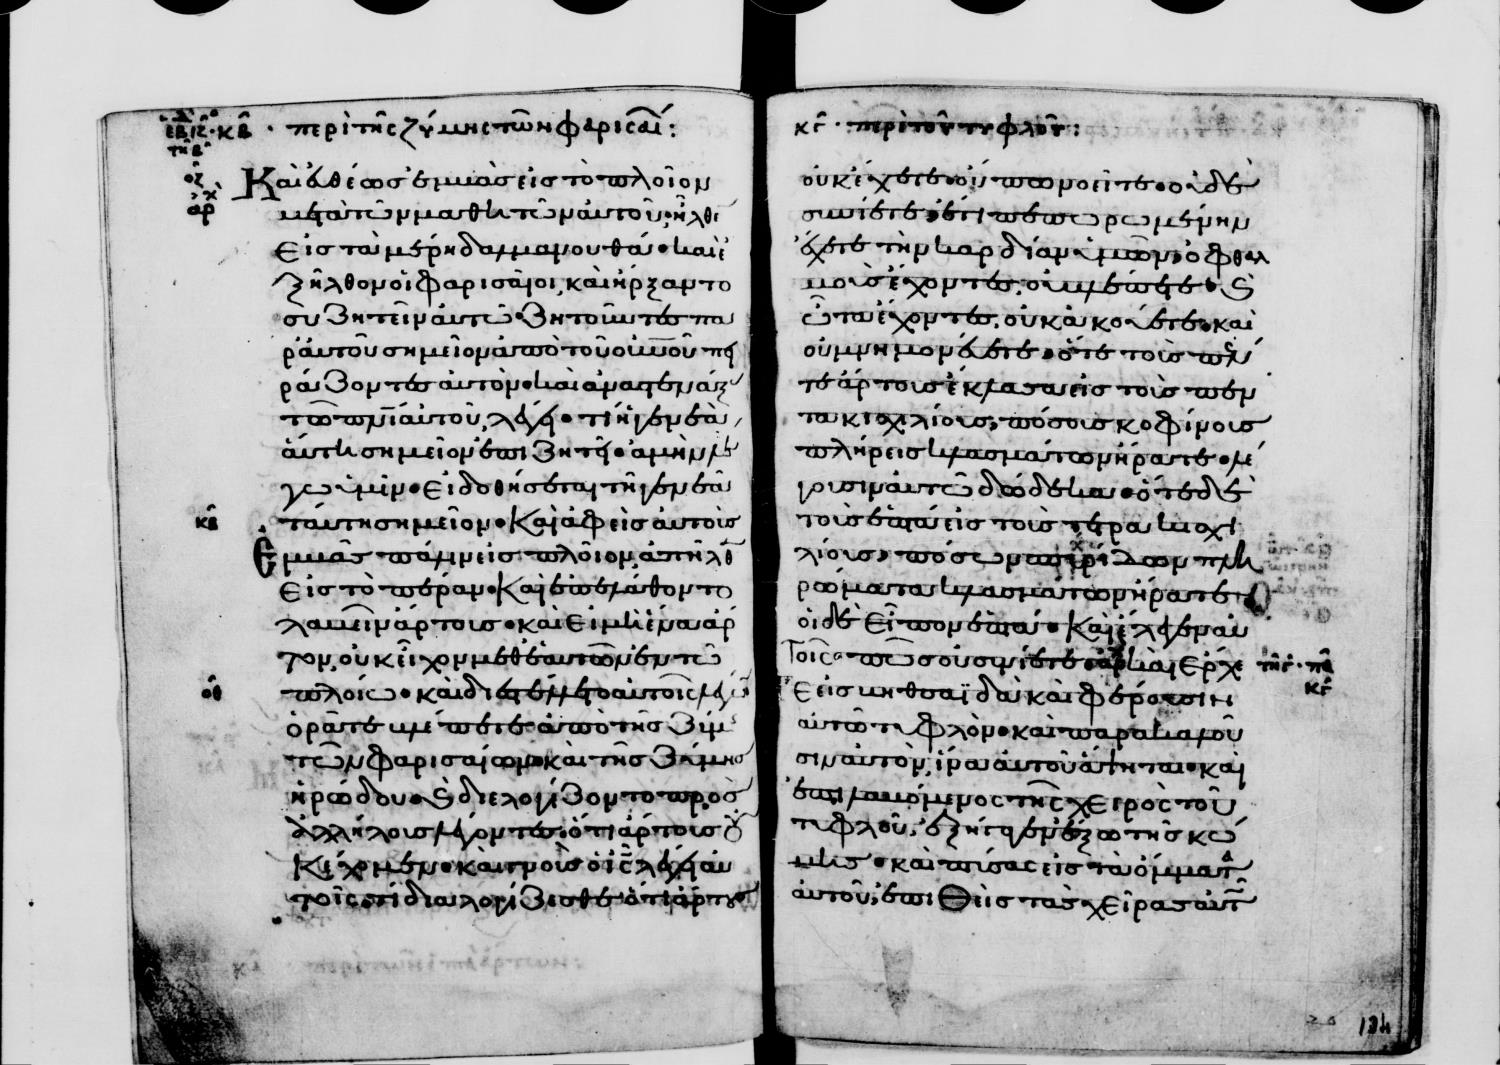 κβ · περὶ τῆς ζύμης τῶν φαρισαί:
Καὶ εὐθέως ἐμβὰς εἰς τὸ πλοῖον
μετὰ τῶν μαθητῶν αὐτοῦ, ἦλθεν
εἰς τὰ μέρη δαλμανουθά· καὶ ἐ
ξῆλθον οἱ φαρισαῖοι, καὶ ἤρξαντο
συζητεῖν αὐτῶ· ζητοῦντες πα
ρ' αὐτοῦ σημεῖον ἀπὸ τοῦ οὐνοῦ πει
ράζοντες αὐτόν· καὶ ἀναστενάξας
τῶ πνι αὐτοῦ, λέγει· τί ἡ γενεὰ
αὕτη σημεῖον ἐπιζητεῖ· ἀμὴν λέ
γω ὑμῖν· εἰ δοθήσεται τῆ γενεᾶ
ταύτη σημεῖον· Καὶ ἀφεὶς αὐτοὺς
ἐμβὰς πάλιν εἰς πλοῖον, ἀπῆλθ
εἰς τὸ πέραν· Καὶ ἐπελάθοντο
λαβεῖν ἄρτους· καὶ εἰ μὴ ἕνα ἄρ
τον, οὐκ εἶχον μεθ' ἑαυτῶν ἐν τῶ
πλοίω· καὶ διεστέλλετο αὐτοῖς λέγων
ὁρᾶτε βλέπετε ἀπὸ τῆς ζύμης
τῶν φαρισαίων· καὶ τῆς ζύμης
ἡρώδου· καὶ διελογίζοντο πρὸς
ἀλλήλους λέγοντες· ὅτι ἄρτους οὐ
κ ἔχομεν· καὶ γνοὺς ὁ ις λέγει αὐ
τοῖς· τί διαλογίζεσθε ὅτι ἄρτους
κβ
οθ
κγ · περὶ τοῦ τυφλοῦ:
οὐκ ἔχετε· οὔπω νοεῖτε· οὐδὲ
συνίετε· ἔτι πεπωρωμένην
ἔχετε τὴν καρδίαν ὑμῶν· ὀφθαλ
μοὺς ἔχοντες, οὐ βλέπετε· καὶ
ὦτα ἔχοντες, οὐκ ἀκούετε· καὶ
οὐ μνημονεύετε· ὅτε τοὺς πέν
τε ἄρτους ἔκλασα εἰς τοὺς πεν
τακισχιλίους, πόσους κοφίνους
πλήρεις κλασμάτων ἤρατε· λέ
γουσιν αὐτῶ δώδεκα· ὅτε δὲ
τοὺς ἑπτὰ εἰς τοὺς τετρακισχι
λίους, πόσων σπυρίδων πλη
ρώματα κλασμάτων ἤρατε·
οἱ δὲ εἶπον ἑπτά· Καὶ ἔλεγεν αὐ
τοῖς· πῶς οὐ συνίετε· καὶ ἔρχε
ται εἰς βηθσαϊδὰ· καὶ φέρουσιν
αὐτῶ τυφλόν· καὶ παρακαλοῦ
σιν αὐτὸν, ἵνα αὐτοῦ ἅψηται· καὶ
ἐπιλαβόμενος τῆς χειρὸς τοῦ
τυφλοῦ, ἐξήγαγεν ἔξω τῆς κώ
μης· καὶ πτύσας εἰς τὰ ὄμματα
αὐτοῦ, ἐπιθεὶς τὰς χεῖρας αὐτ
κγ
134